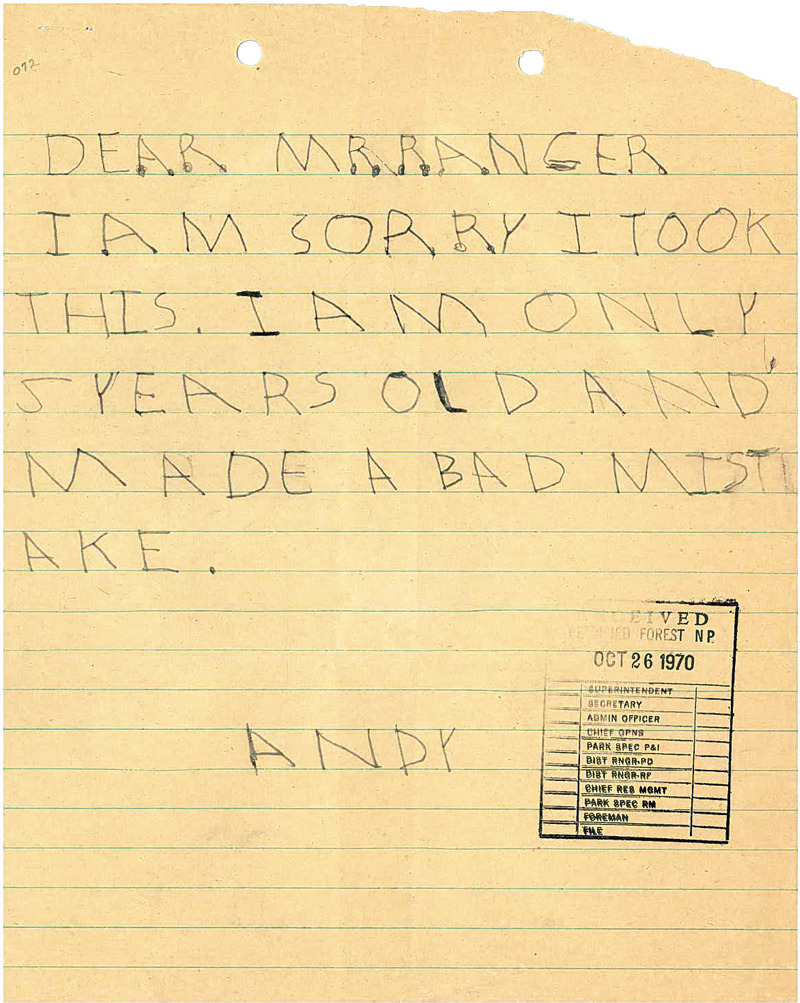 072
DEAR MR.RANGER
I AM SORRY I TOOK
THIS. I AM ONLY
5 YEARS OLD AND
MADE A BAD MIST
AKE.
ANDY
CEIVED
FOREST NP
OCT 26 1970
SUPERINTENDENT
SECRETARY
ADMIN OFFICER
CHIEF OPNS
PARK SPEC P&I
DIST RNGR-PD
DIST RNGR-RF
CHIEF RES MGMT
PARK SPEC RM
FOREMAN
FILE